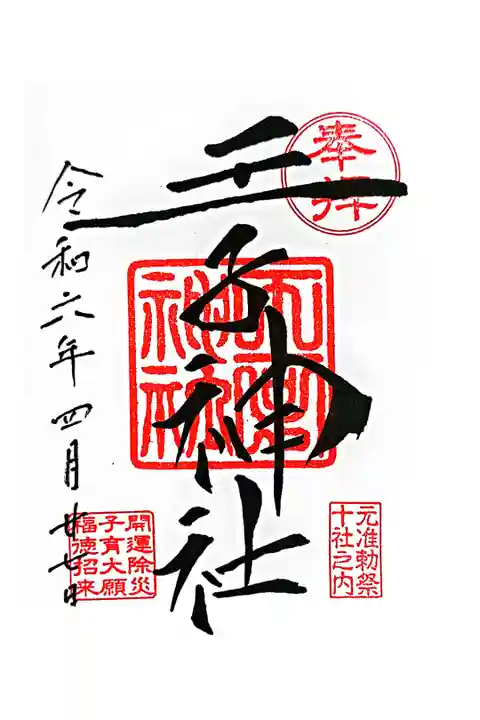 奉拝
王子神社
王子神社
元准勅祭
十社之内
開運除災
子育大願
福徳招来
令和六年四月廿七日